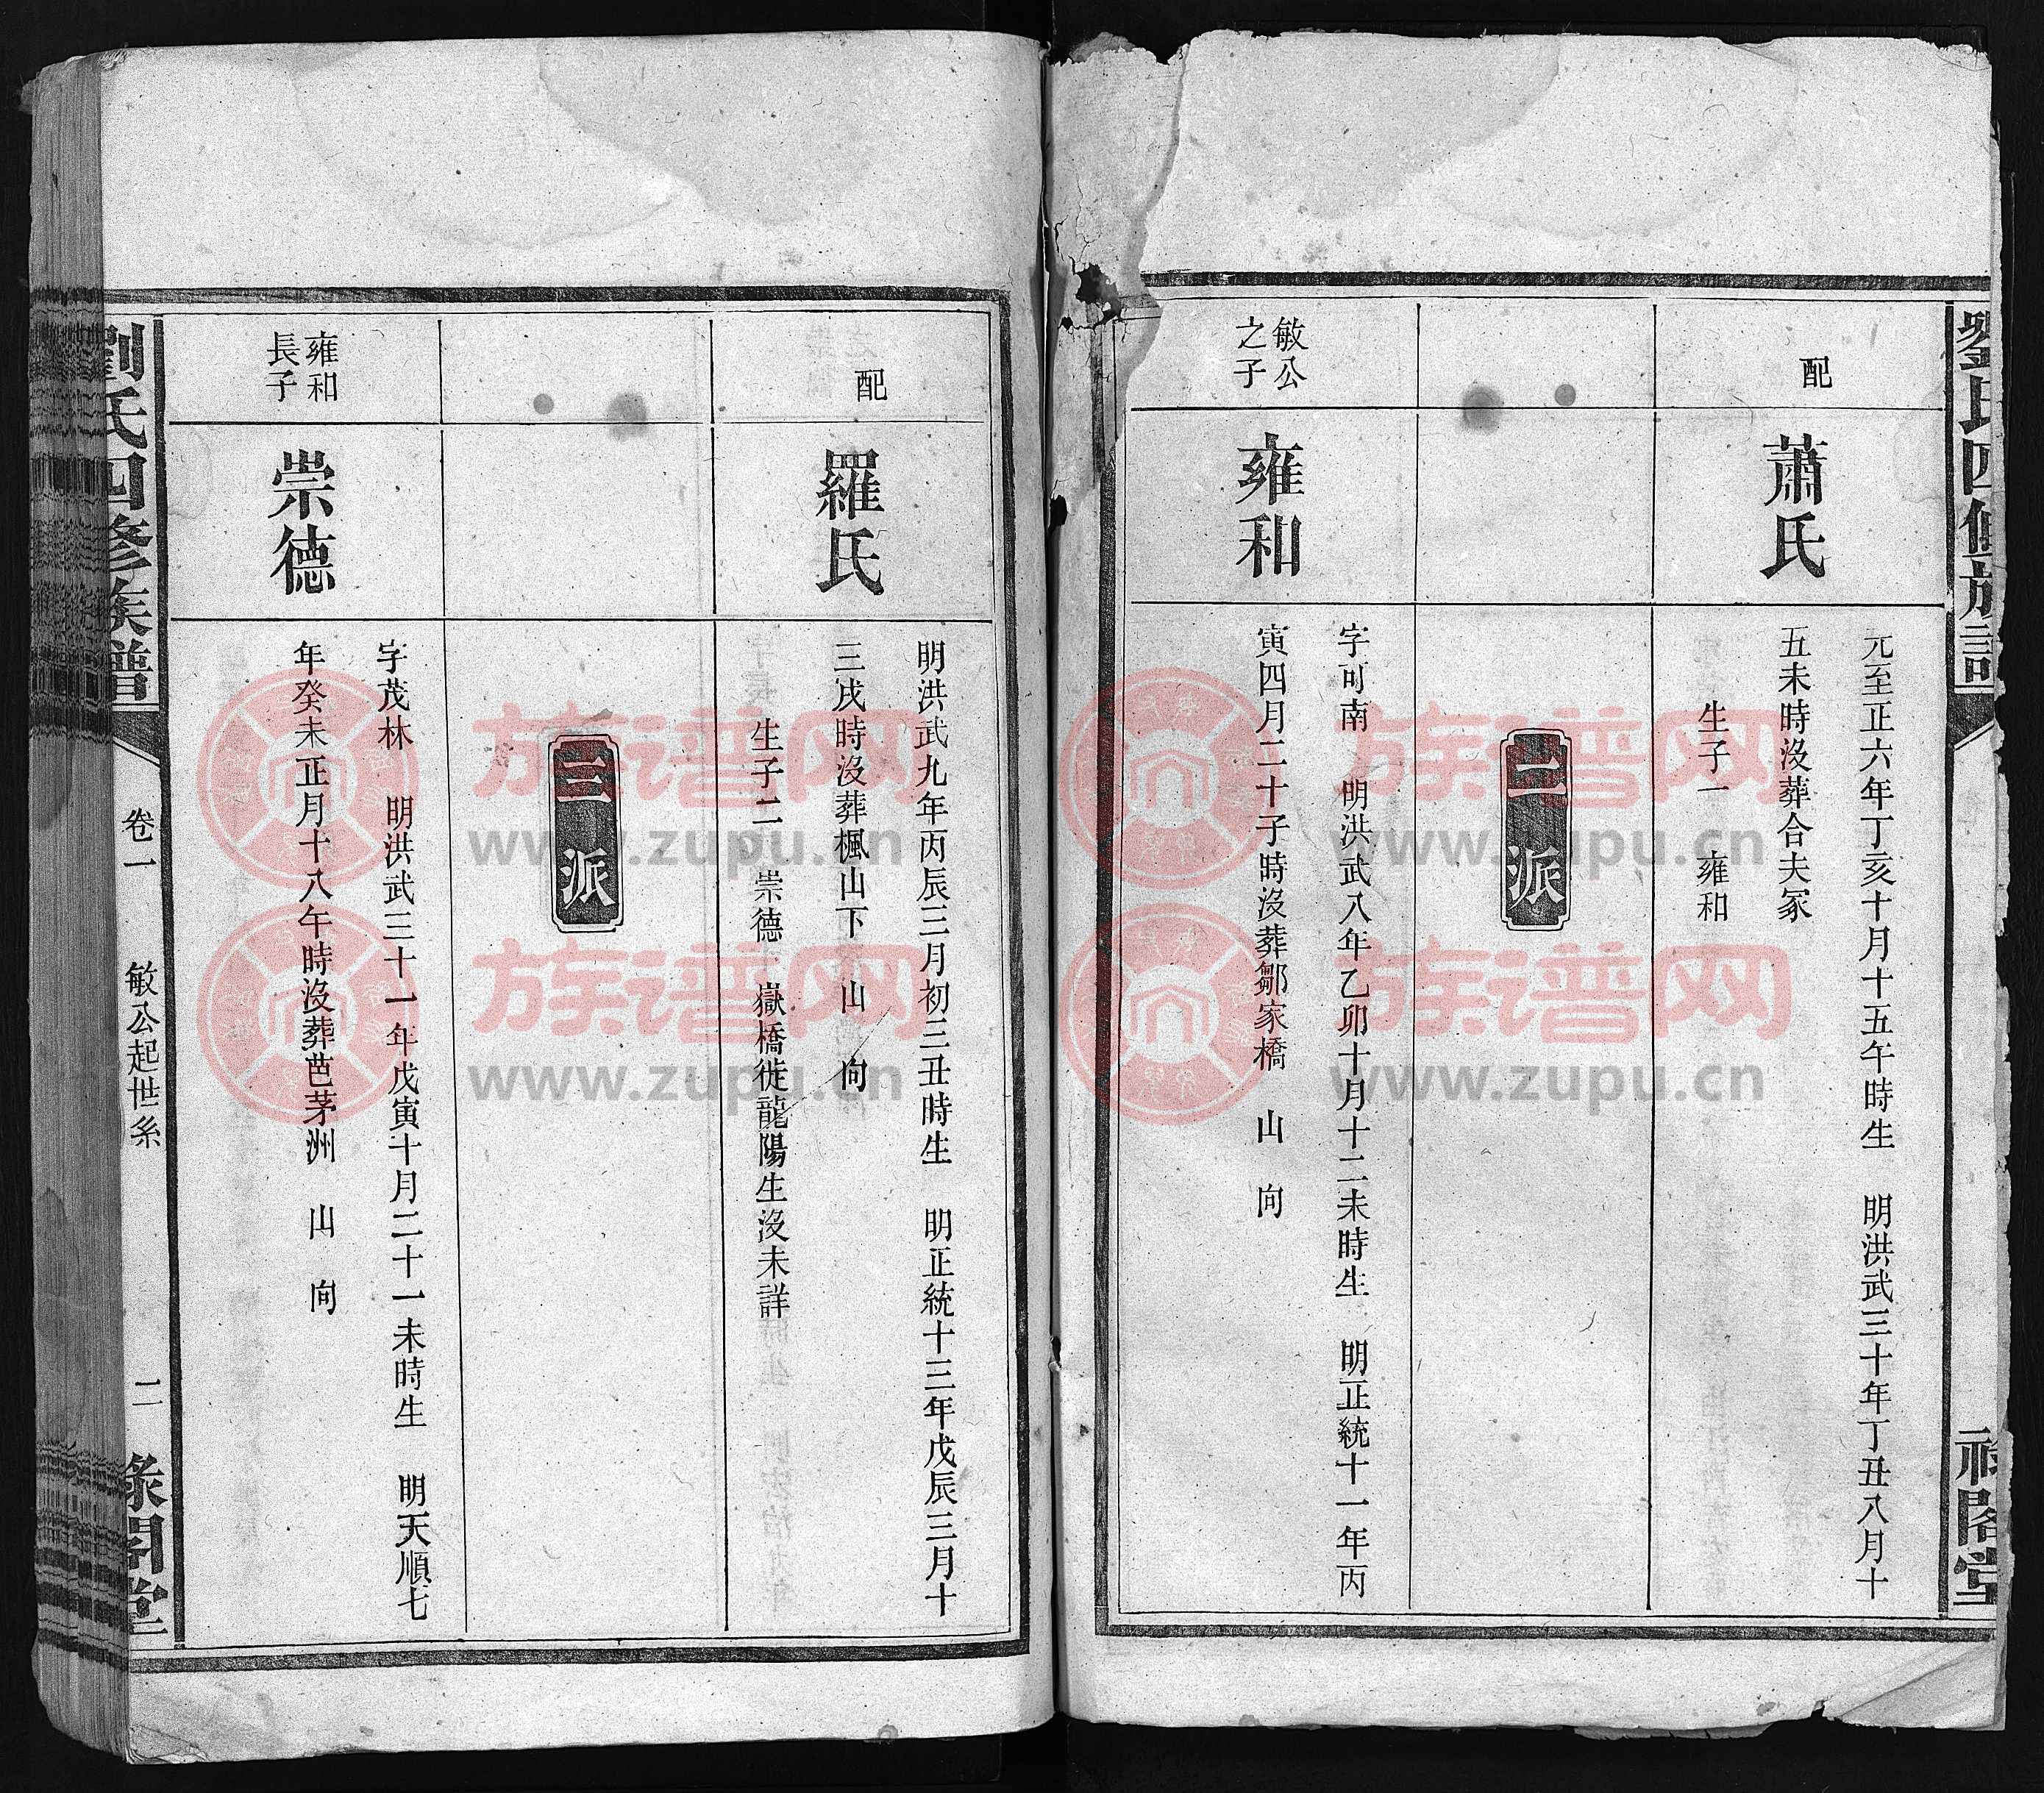 劉氏四修族譜
祿閣堂
配
蕭氏
元至正六年丁亥十月十五午時生 明洪武三十年丁丑八月十
五未時沒葬合夫冢
生子一 雍和
二派
敏公
之子
雍和
字可南 明洪武八年乙卯十月十二未時生 明正統十一年丙
寅四月二十子時沒葬鄒家橋 山 向
配
羅氏
明洪武九年丙辰三月初三丑時生 明正統十三年戊辰三月十
三戌時沒葬楓山下 山 向
生子二 崇德 嶽橋徙龍陽生沒未詳
三派
雍和
長子
崇德
字茂林 明洪武三十一年戊寅十月二十一未時生 明天順七
年癸未正月十八午時沒葬芭茅洲 山 向
劉氏四修族譜
卷一 敏公起世系 二
祿閣堂
族谱网
www.zupu.cn
族谱网
www.zupu.cn
族谱网
www.zupu.cn
族谱网
www.zupu.cn